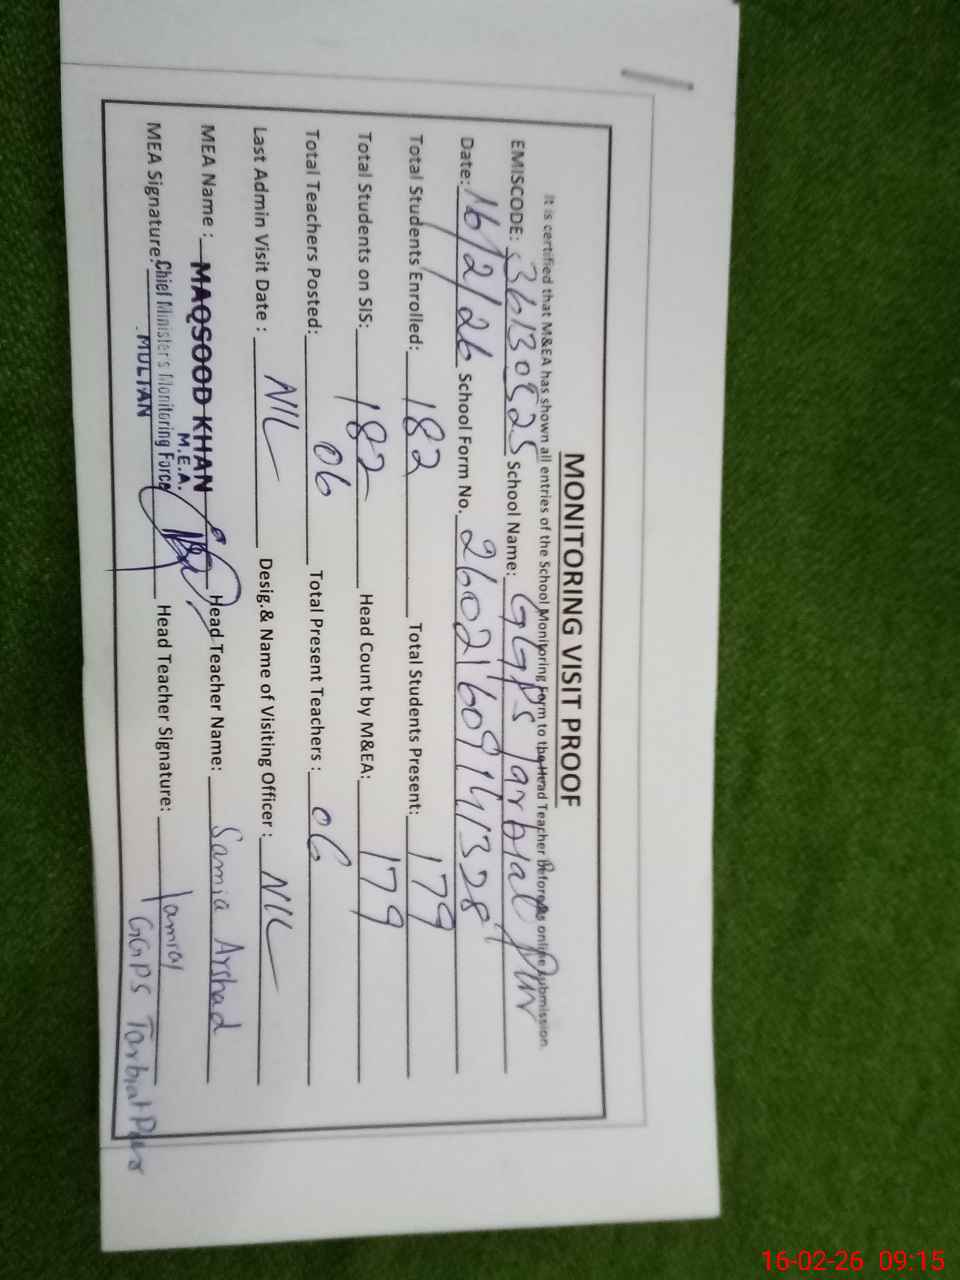 MONITORING VISIT PROOF
It is certified that M&EA has shown all entries of the School Monitoring Form to the Head Teacher before its online submission.
EMISCODE: 36130525 School Name: GGPS Tarbiat Pur
Date: 16/2/26 School Form No. 26021609141328
Total Students Enrolled: 182 Total Students Present: 179
Total Students on SIS: 182 Head Count by M&EA: 179
Total Teachers Posted: 06 Total Present Teachers : 06
Last Admin Visit Date : NIL Desig.& Name of Visiting Officer : NIL
MEA Name : MAQSOOD KHAN Head Teacher Name: Samia Arshad
M.E.A.
MEA Signature: Chief Minister's Monitoring Force Head Teacher Signature:
MULTAN GGPS Tarbiat Pur
16-02-26 09:15